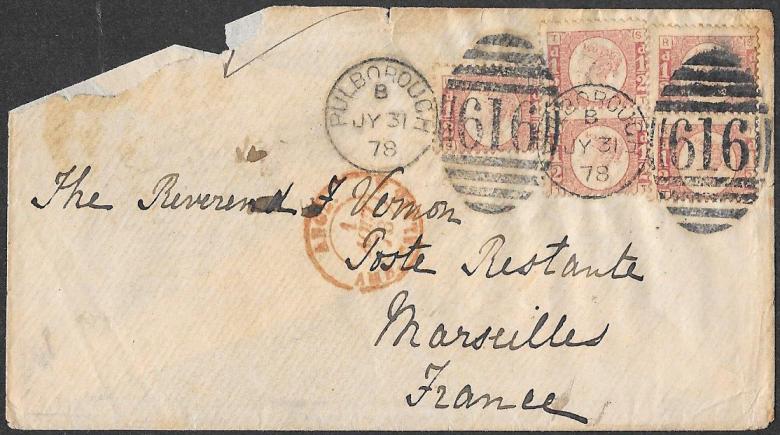 PULBOROUGH
B
JY 31
78
616
BOROUGH
B
JY 31
78
616
The Reverend F Vernon
Poste Restante
Marseilles
France